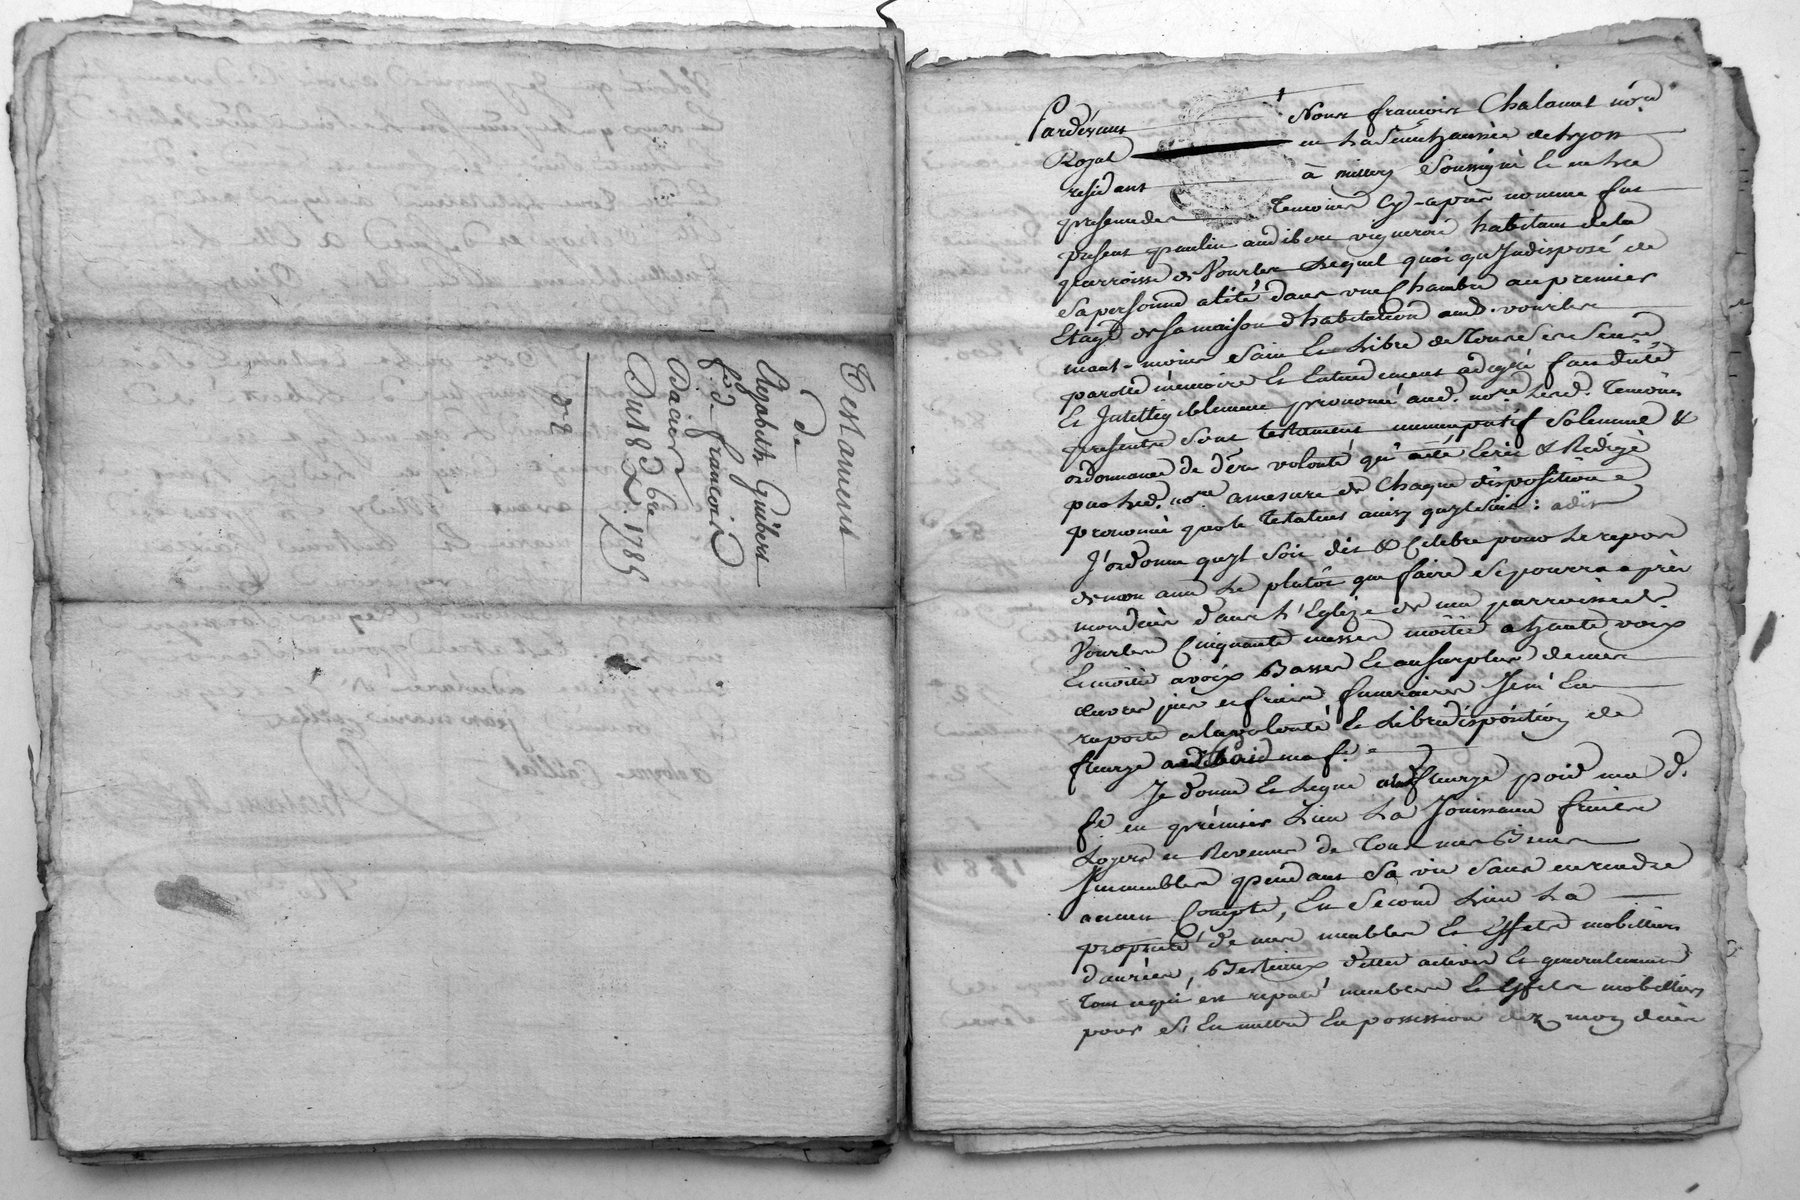 Testament
de
Elizabeth Guibert
fe. d. francois
Dacier
Du 18 d. bre 1785
Pardevant Nous francois Chalamel no.re
Royal en la Sénéchaussée de Lyon
residant à millery Soussigné Et en la
presence des Temoins Cy-après nommes fut
present
parroisse de Vourles Lequel quoi qu'Indisposé de
Sa personne alité dans une Chambre au premier
Etage de sa maison d'habitation aud. vourles
neant-moins Sain Et Libre de Tous Ses Sens
parolle mémoire Et Entendement a dicté
Et Intelligiblement prononcé aud. no.re Et Temoins
presents Son testament nuncupatif Solemnel &
ordonnance de d.ere volonté qui a été Ecrit & Redigé
par Led. no.re a mesure de Chaque disposition
prononcé par le Testateur ainsy qu'il Suit:
J'ordonne qu'il Soit dit & Celebré pour Le repos
de mon ame Le plutôt que faire Se pourra après
mon décès dans L'Eglize de ma parroisse de
Vourles Cinquante messes moitié a haute voix
Et moitié a voix Basse Et au Surplus de mes
œuvres pies et frais funeraires Je m'En
raporte a la volonté Et Libre disposition de
fleurye poid ma fe.
Je donne Et Legue a fleurye poid ma d.
fe. en prémier Lieu La Jouissance fruits
Loyers et Revenus de Tous mes Biens
Immeubles pendant Sa vie Sans en rendre
aucun Compte, En Second Lieu La
proprieté de mes meubles Et Effets mobilliers
danrées, Bestiaux dettes actives Et generalement
Tout ce qui est reputé meubles Et Effets mobilliers
pour S'En mettre En possession dez mon décès